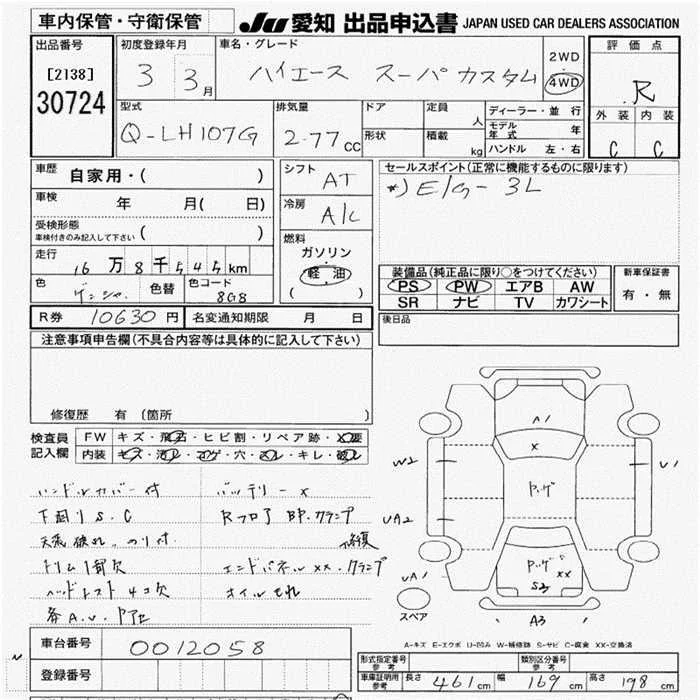 車内保管・守衛保管
JU 愛知 出品申込書 JAPAN USED CAR DEALERS ASSOCIATION
出品番号
[2138]
30724
初度登録年月
3 3月
車名・グレード
ハイエース スーパーカスタム
2WD
・
4WD
評価点
R
外装 内装
C C
型式
Q-LH107G
排気量
2.77cc
ドア
形状
定員 人
積載 kg
ディーラー・並行
モデル年式 年
ハンドル 左・右
車歴
自家用・( )
車検 年 月( 日)
受検形態
車検付きのみ記入して下さい ( )
走行
16万8千545km
色
色替
色コード
8G8
シフト
AT
冷房
A/C
燃料
ガソリン
・
軽油
( )
セールスポイント(正常に機能するものに限ります)
*)E/G- 3L
装備品(純正品に限り○をつけてください)
PS PW エアB AW
SR ナビ TV カワシート
新車保証書
有・無
R券 10630円 名変通知期限 月 日
後日品
注意事項申告欄(不具合内容等は具体的に記入して下さい)
修復歴 有(箇所 )
検査員記入欄
FW キズ・飛石・ヒビ割・リペア跡・X要
内装 キズ・汚レ・コゲ・穴・スレ・キレ・破レ
ハンドルカバー付
バッテリー×
下回りS.C
Rフロア BP.クランプ
修復
トリム1部欠
エンドパネルxx.クランプ
ヘッドレスト4コ欠
オイルモレ
A1
x
W2
U1
UA2
UA1
xx
S3
A3
スペア
A-キズ E-エクボ U-凹み W-補修跡 S-サビ C-腐食 XX-交換済
車台番号 0012058
登録番号
形式指定番号 参考
類別区分番号 参考
車庫証明用 参考 長さ 461cm 幅 169cm 高さ 198cm